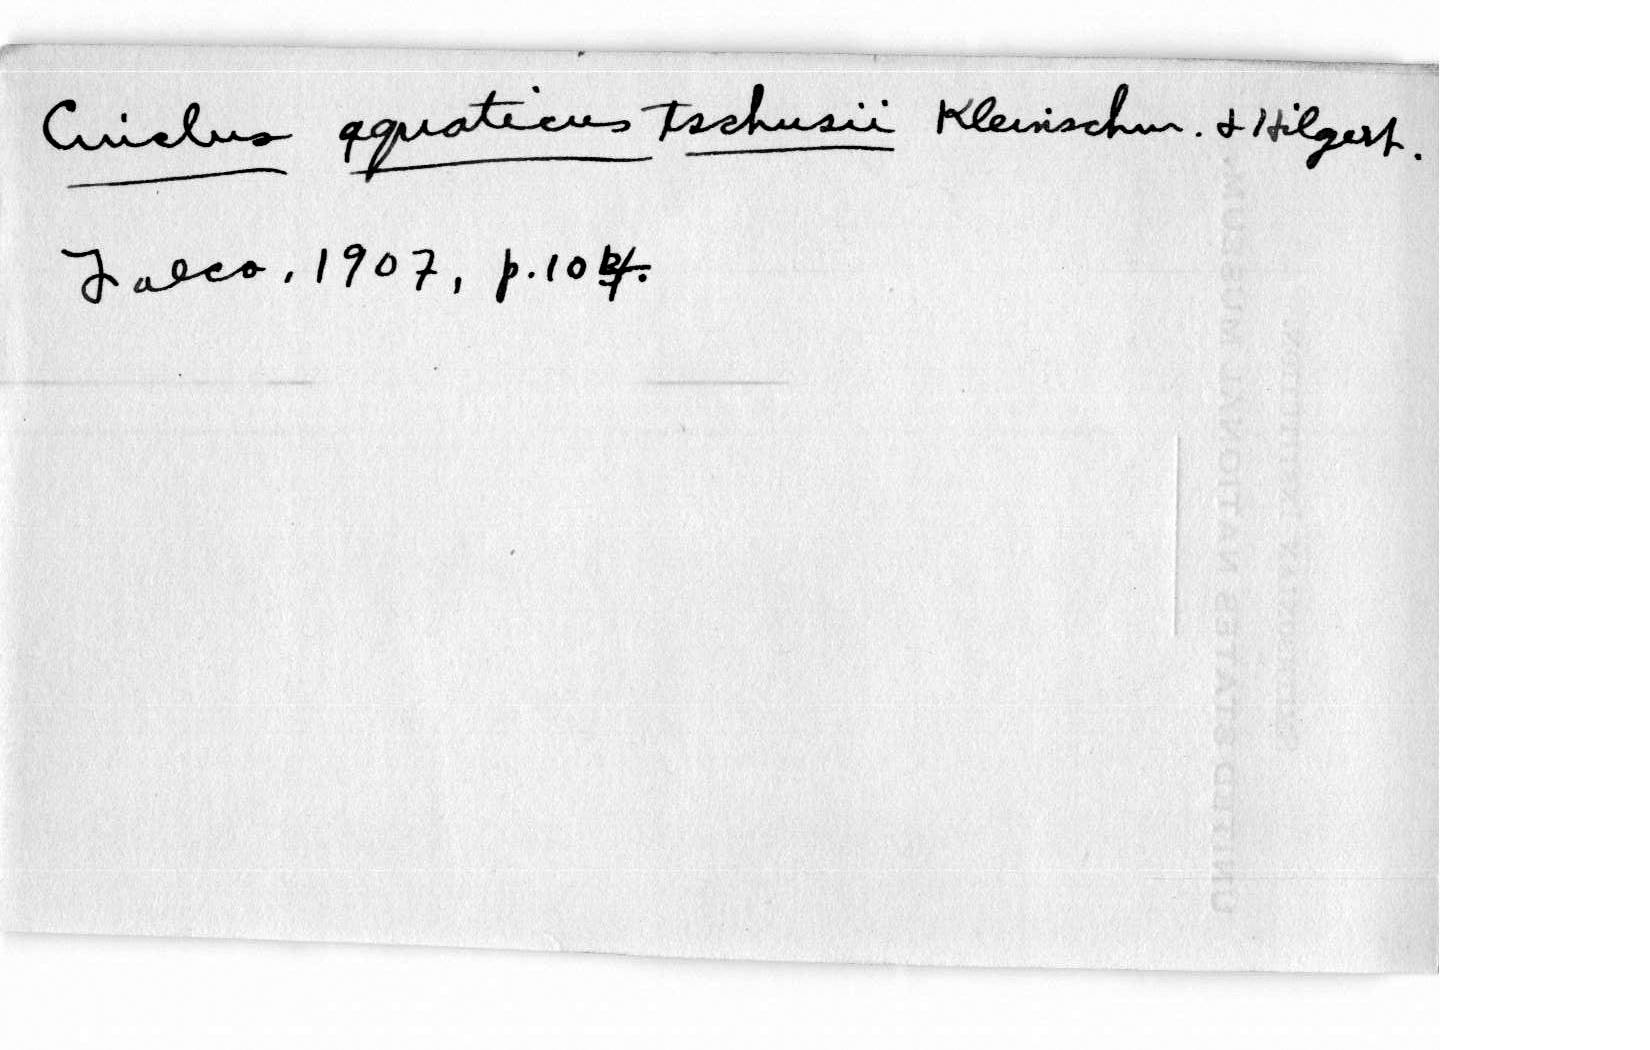 Cinclus aquaticus Tschusii Kleinschm. & Hilgert.
Falco, 1907, p. 104.
UNITED STATES NATIONAL MUSEUM.
SMITHSONIAN INSTITUTION.